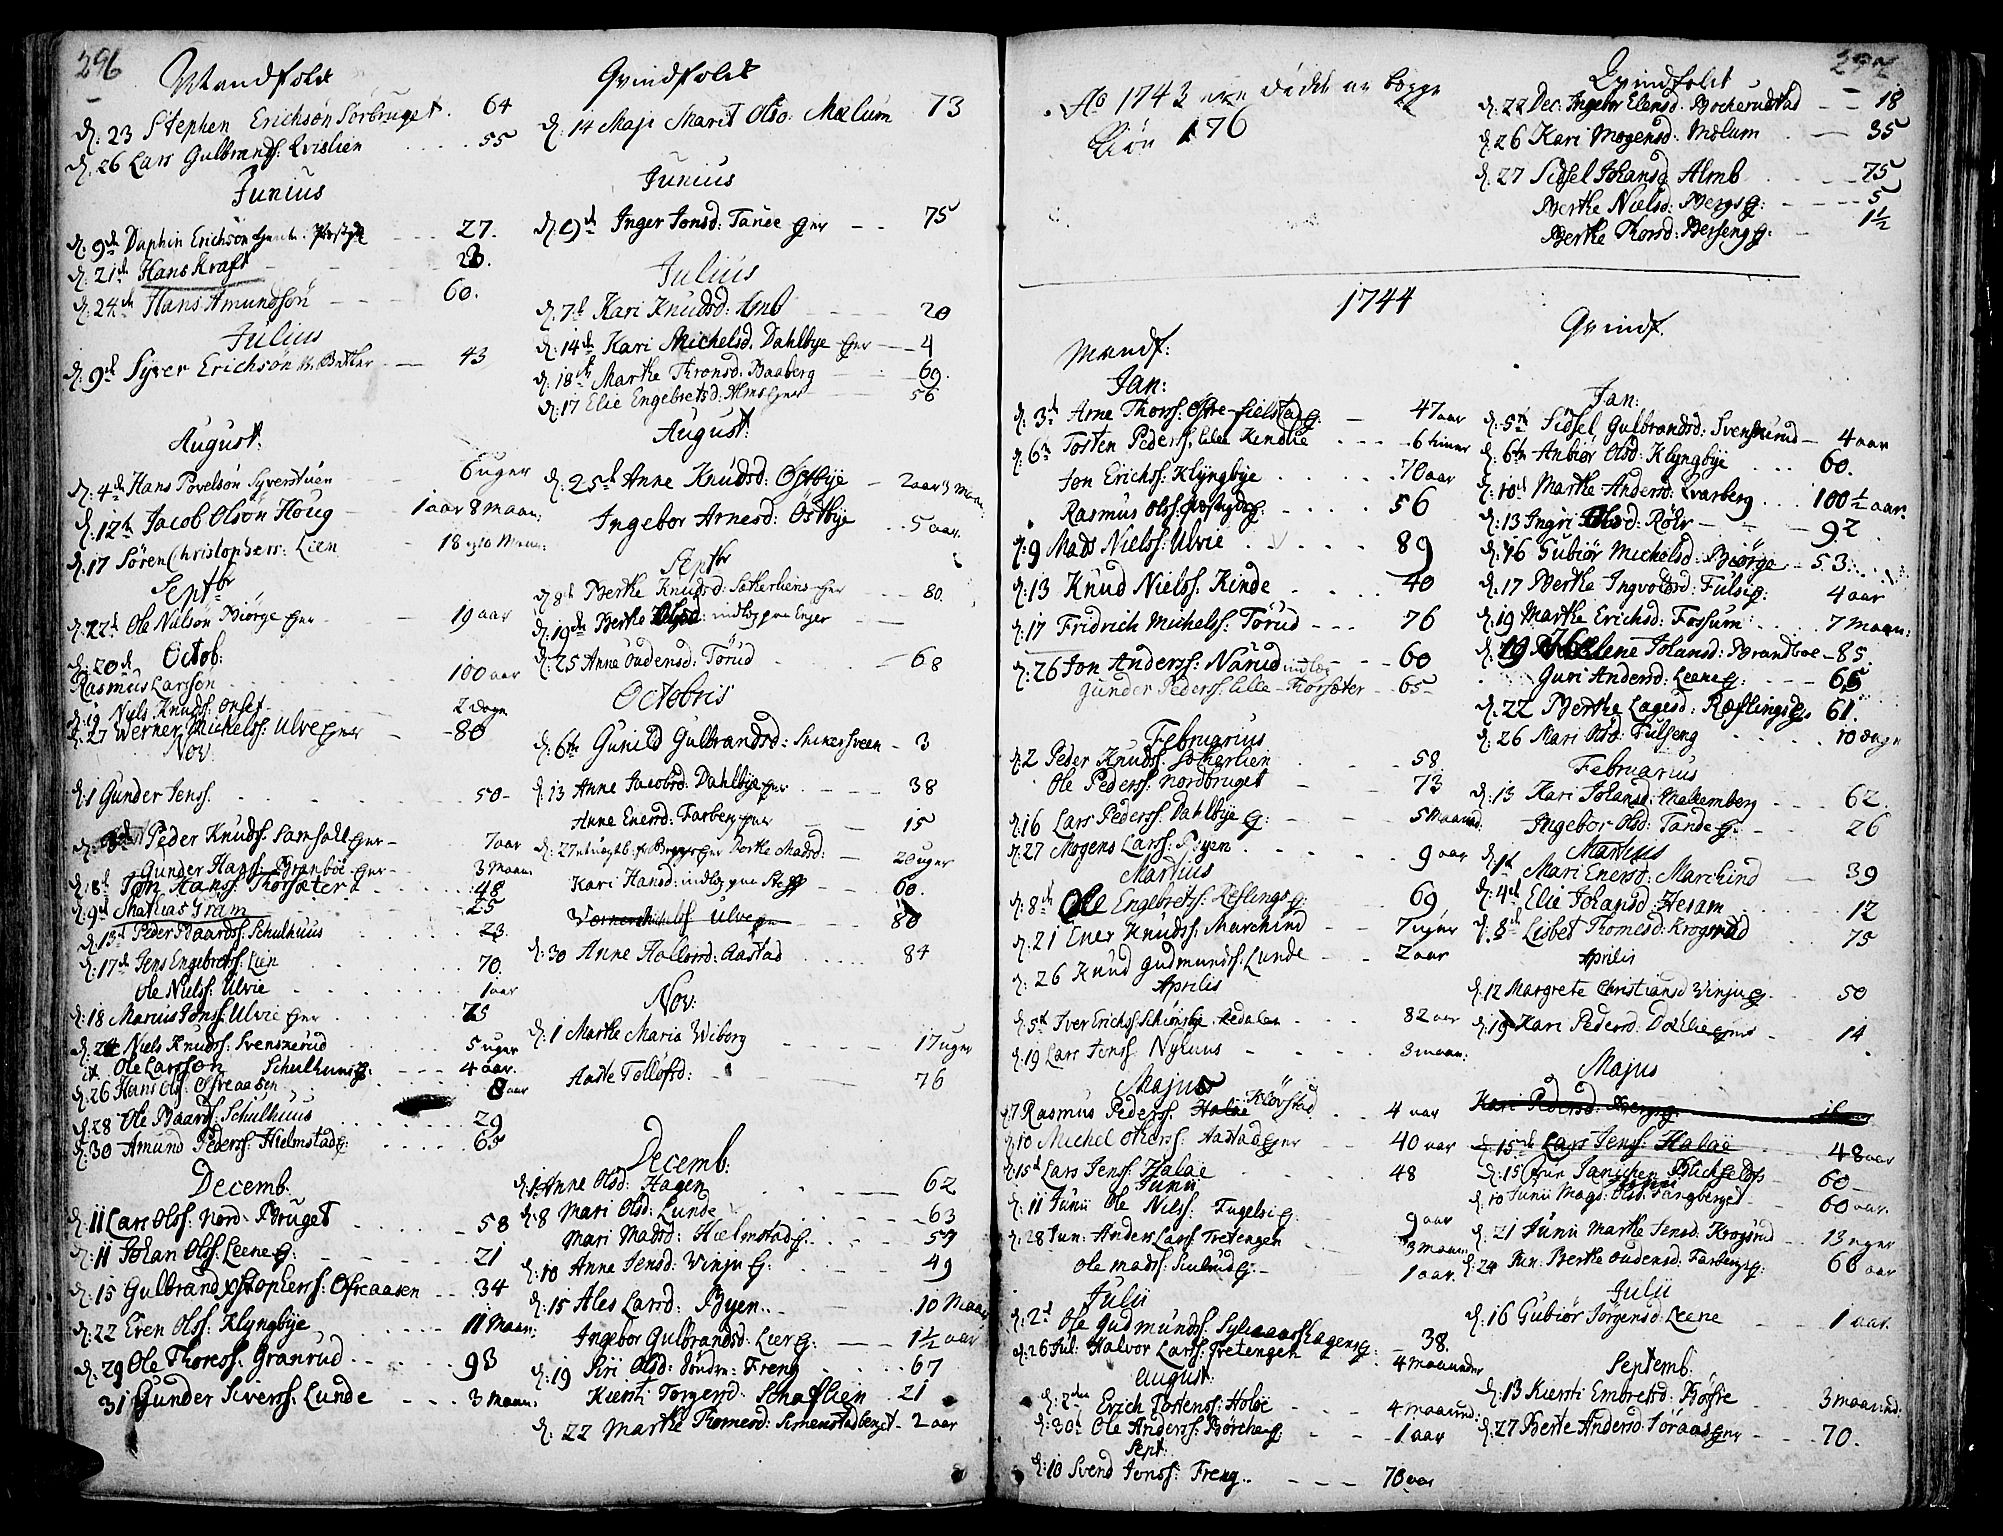 296
Mandfolk
d: 23 Stephen Erichsøn Sørbruget. 64
d: 26 Lars Gulbrands: Qvislien 55
Junius
d. 9de Daphin Erichsøn 27.
d: 21de Hans Kraft
d: 24de Hans Amundsøn 60.
Julius
d: 9de Syver Erichsøn 43
August:
d: 4de Hans Povelsøn Syverstuen 6 uger
d: 12te Jacob Olsøn Houg 1 aar 8 maan:
d: 17 Søren Christophers: Lien 18
Septbr
d: 22de Ole Nielsøn Biørge Eyer 19 aar
d: 20de Octob:
Rasmus Larsson 100 aar
d: 19 Niels Knuds: Onset 2 dage
d: 27 Werner Michelss: Ulve Eyer 80
Nov:
d: 1 Gunder Jenss. 50
Peder Knudss: Samsall Eyer 7 aar
Gunder Hanss: Eyer 3 Maan
d: 8de Jon Hanss: Thorsæter 48
d: 9de Mathias Gram 25
d: 13de Peder Baardss: Schulhuus 23.
d: 17de Jens Engebretss: Lien 70.
Ole Nielss: Ulvie 1 aar
d: 18 Marius Jonss: Ulvie Eyer 75
Niels Knudss: Svensrud 5 uger
Ole Larsson Schulhuus 4 aar.
d: 26 Hans Ols: Ofreaasen 8 aar
d: 28 Ole Baardss: Schulhuus 29
d: 30 Amund Pederss: Hielmstad 65
Decemb.
d: 11 Lars Olss: Nord-Bruget 58
d: 11 Johan Olss: Leene E: 21
d: 15 Gulbrand Xstophers: Ofreaasen 34
d: 22 Even Olss: Klyngbye 11 Maan:
d: 29 Ole Thoress: Granrud 93
31 Gunder Siverss: Lunde 3 Maan.
Qvindfolk
d. 14 Maji Marit Olsd: Mælum 73
Junius
d. 9de Inger Jonsd: Eyer 75
Julius
d. 7de Kari Knudsd: Almb 20
d: 14de Kari Michelsd. Dahlbye Eyer 4
d: 18de Marthe Thronsd: Baaberg 69.
d: 17 Elie Engebretsd: Eyer 56
August:
d: 25de Anne Knudsd: Østbye 2 aar 3 Maan.
Ingebor Arnesd: Østbye 5 aar.
Septbr
d. 8de Berthe Knudsd: Sætherliens Eyer 80.
d: 19de Berthe indlæg paa Enger
d: 25 Anne Oudensd: Torud 68
Octobris
d: 6te Gunild Gulbrandsd: 3
d: 13 Anne Jacobsd: Dahlbye Eyer 38
Anne Enersd: Farberg Eyer 15
d: 27 Berthe Madsd: 2 uger
Kari Hansd: indlæg paa 60.
Werner Michelss: Ulve Eyer 80
d: 30 Anne Hallorsd: Aastad 84
Nov:
d: 1 Marthe Maria Wiborg 17 uger
Aaste Tollofsd: 76
Decemb:
d: 1 Anne Olsd: Hagen 62
d: 8 Mari Olsd: Lunde 63
Mari Madsd: Hielmstad E: 57
d: 10 Anne Jensd: Vinju E: 49
d: 15 Ales Larsd: Byen 10 Maan
Ingebor Gulbrandsd: Lier E: 1½ aar
d: 19 Siri Olsd: Søndre-Freng 67
Kiersti Torgersd: Schaflien 21
d: 22 Marthe Thomesd: Simenstadberget 2 aar
297
Ao 1743 ere døde af begge
Kiøn 176
Qvindfolk
d: 22 Dec. Ingebor Elensd: Bocherudstad 18
d: 26 Kari Mogensd: Mælum 35
d: 27 Sidsel Johansd: Almb 75
Berthe Nielsd: Bergs E: 5
Berthe Thorsd: Berseng E: 1½
1744
Mandf:
Jan:
d: 3de Arne Thorss: Øfre-Fielstad E. 47 aar
d: 6te Tosten Pederss: Lille Kindlie 6 timer
Jon Erichss: Klyngbye 70 aar
Rasmus Olss: 56
d: 9 Mads Nielss: Ulvie 89
d: 13 Knud Nielss: Kinde 40
d: 17 Fridrich Michelss: Torud 76
d: 26 Jon Anderss: Narud indlæg 60
Gunder Pederss: Lille-Thorsæter 65
Februarius
d: 2 Peder Knudss: Sætherlien 58.
Ole Pederss: Nordbruget 73
d: 16 Lars Pederss: Dahlbye E: 5 Maaned:
d: 27 Mogens Larss: Byen 9 aar
Martius
d: 8de Ole Engebretss: Refling E: 69
d: 21 Ener Knudss: Marchind 7 uger
d: 26 Knud Gudmundss: Lunde 2 aar
Aprilis
d: 5de Iver Erichss: 82 aar
d: 19 Lars Jenss: Nyhuus 3 maan:
Majus
d: 7 Rasmus Pederss: Halae Klövstad 4 aar
d: 10 Michel Aastad Eyer 40 aar
d: 15de Lars Jenss: Halae 48
Junii
d: 11 Junii Ole Nilss: Fugelsi E: 9 aar
d: 28 Jun: Anders Larss: Tretengen 3 maan
Ole Madss: 1 aar.
Julii
d: 2de Ole Gudmundss: 38.
d: 26 Jul: Halvor Larss: Tretengen 4 maaneder
August:
Erich Tostenss: Holøe 4 maaned:
d: 30de Ole Anderss: 1 aar
Sept:
d: 10 Svend Jonss: Freng 70 aar
Qvindf.
Jan:
d: 5te Sidsel Gulbrandsd: Svensrud 4 aar
d: 6te Anbiør Olsd: Klyngbye 60.
d: 10de Marthe Andersd: Qvarberg 100½ aar.
d: 13 Ingri Olsd: Röhr 92
d: 16 Gubiør Michelsd: Biørge 53.
d: 17 Berthe Ingvoldsd: Fulsi E: 4 aar
d: 19 Marthe Erichsd: Fossum 7 maan:
19 Helene Johansd: Brandboe 85.
Guri Andersd: Leene E: 65
d: 22 Berthe Lagesd: Reflings E. 61.
d: 26 Mari Olsd: Fulseng 10 uger
Februarius
d: 13 Kari Johansd: 62.
Ingebor Olsd: Tande E: 26
Martius
d. 1de Mari Enersd: Marchind 39
d: 4de Elie Johansd: Hesam 12
d: 8de Lisbet Thomesd: Krogsrud 75
Aprilis
d: 12 Margrete Christiansd Vinju E. 50
d: 19 Kari Pedersd: 14
Majus
Kari Pedersd: Bergs E:
d: 15de Lars Jenss: Halae 48 aar
d: 15 60
d: 10 Junii Magd: Olsd: 60 aar
d: 21 Junii Marthe Jensd: Krogsrud 13 uger
d: 24 Jun: Berthe Oudensd: Farbergs E: 66 aar
Julii
d: 16 Gubiør Jörgensd: Leene 1 aar.
Septemb:
d: 13 Kiersti Embretsd: 3 maaned:
d: 27 Berte Andersd: 70.